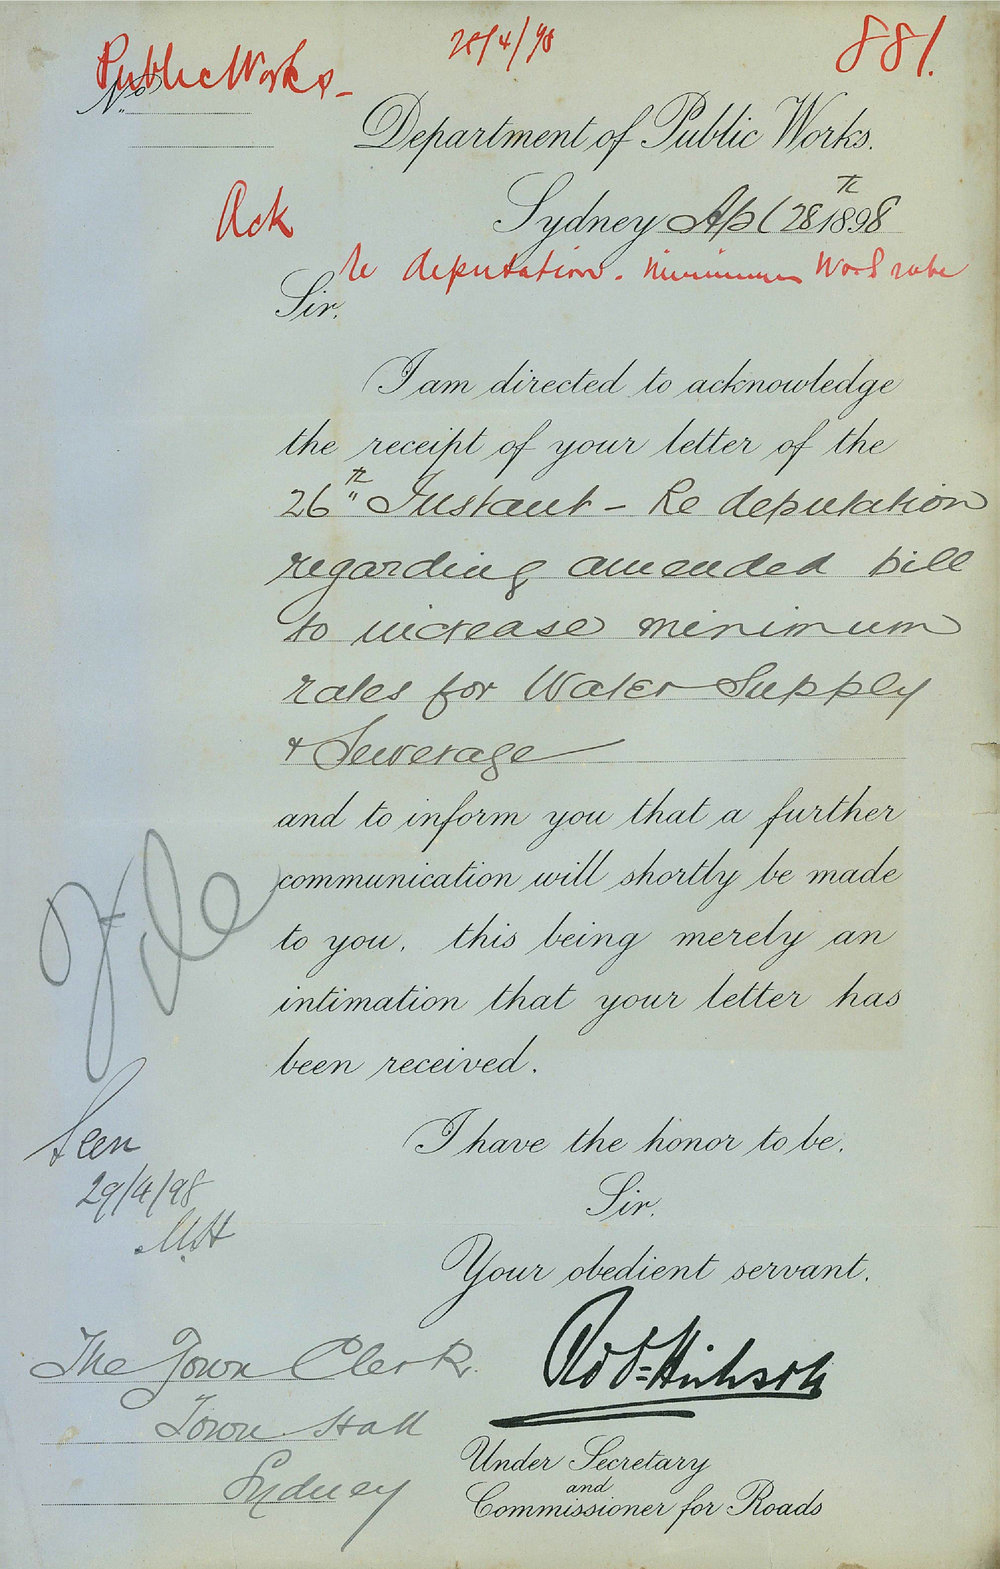 Public Works -
28/4/98
881.
No.
Department of Public Works.
Ack
Sydney Apl 28th 1898
re deputation. minimum Wat rate
Sir,
I am directed to acknowledge
the receipt of your letter of the
26th Instant - Re deputation
regarding amended bill
to increase minimum
rates for Water Supply
& Sewerage
and to inform you that a further
communication will shortly be made
to you, this being merely an
intimation that your letter has
been received.
File
Seen
29/4/98
M.H
I have the honor to be,
Sir,
Your obedient servant,
The Town Clerk.
Town Hall
Sydney
Under Secretary
and
Commissioner for Roads